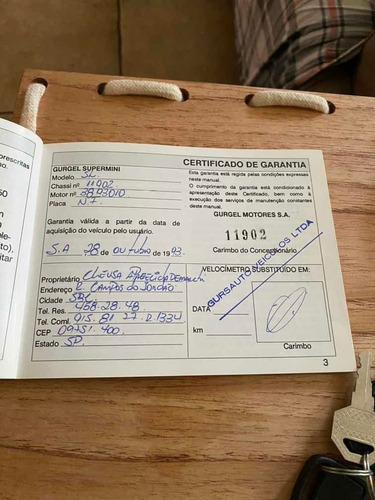 prescritas
o.
50
m
ele-
to),
itar
GURGEL SUPERMINI
Modelo SL
Chassi nº 11902
Motor nº
Placa N.T.
Garantia válida a partir da data de
aquisição do veículo pelo usuário.
S.A 28 de outubro de 1993.
Proprietário Cleusa Aparecida
Endereço R. Campos do Jordão
Cidade SBC
Tel. Res. 458.28.48
Tel. Coml. 915.81 27 R 1334
CEP 09751.400
Estado SP.
CERTIFICADO DE GARANTIA
Esta garantia está regida pelas condições expressas
neste manual.
O cumprimento da garantia está condicionado à
apresentação deste Certificado, bem como à
execução dos serviços de manutenção constantes
deste manual.
GURGEL MOTORES S.A.
11902
Carimbo do Concessionário
GURSAUTO VEICULOS LTDA
VELOCÍMETRO SUBSTITUÍDO EM:
DATA
km
Carimbo
3